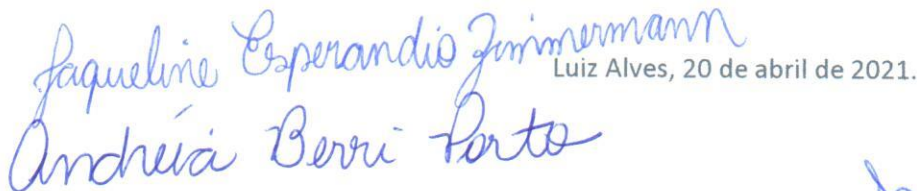 Jaqueline Esperandio Zimmermann
Luiz Alves, 20 de abril de 2021.
Andréia Berri Porto